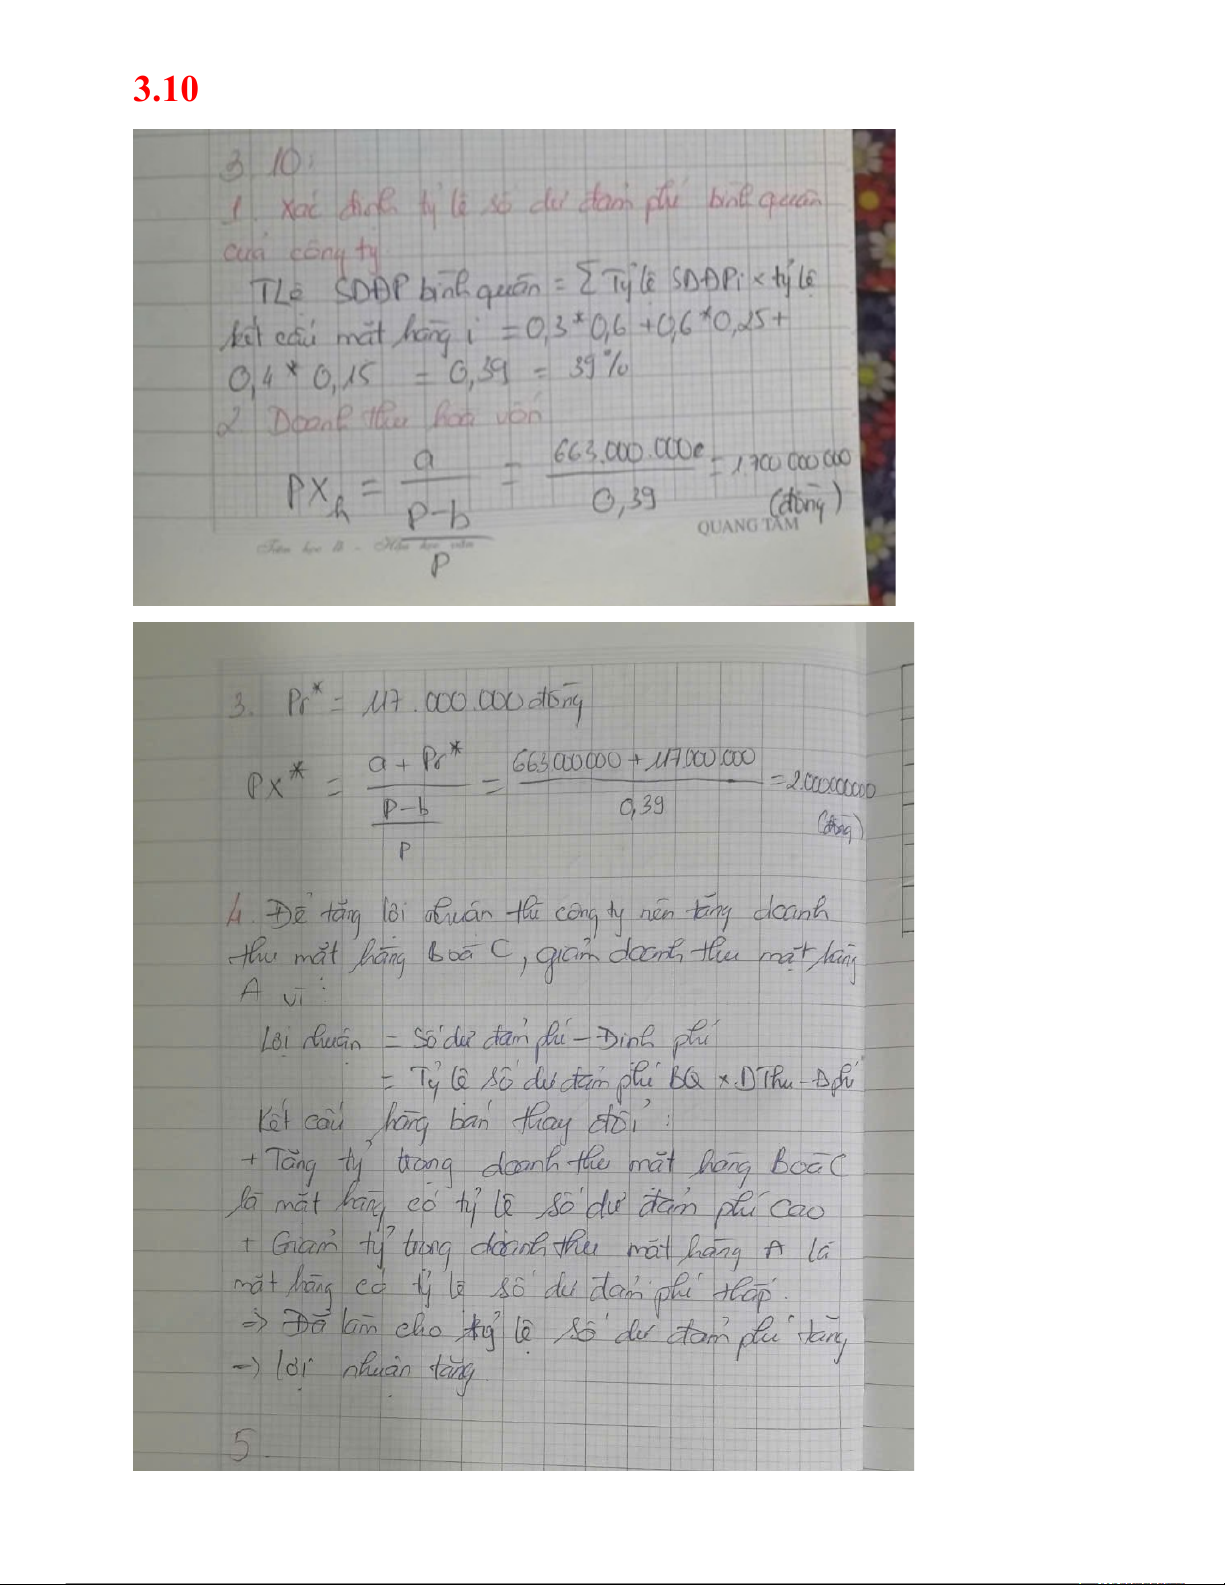 3.10
3 10:
1. Xác định tỷ lệ số dư đảm phí bình quân
của công ty
TLệ SDĐP bình quân = Σ Tỷ lệ SDĐPi × tỷ lệ
kết cấu mặt hàng i = 0,3*0,6 + 0,6*0,25 +
0,4 * 0,15 = 0,39 = 39%
2. Doanh thu hoà vốn
PXh = a / ((P-b)/P) = 663.000.000 / 0,39 = 1.700 000 000
(đồng)
QUANG TÂM
Tiên học lễ - Hậu học văn
3. Pr* = 117.000.000 đồng
Px* = (a + Pr*) / ((P-b)/P) = (663.000000 + 117.000.000) / 0,39 = 2.000000000
(đồng)
4. Để tăng lợi nhuận thì công ty nên tăng doanh
thu mặt hàng B và C, giảm doanh thu mặt hàng
A vì:
Lợi nhuận = Số dư đảm phí - Định phí
= Tỷ lệ số dư đảm phí BQ × DThu - Đphí
Kết cấu hàng bán thay đổi:
+ Tăng tỷ trọng doanh thu mặt hàng B và C
là mặt hàng có tỷ lệ số dư đảm phí cao
+ Giảm tỷ trọng doanh thu mặt hàng A là
mặt hàng có tỷ lệ số dư đảm phí thấp.
=> Đã làm cho tỷ lệ số dư đảm phí tăng
-> lợi nhuận tăng
5.